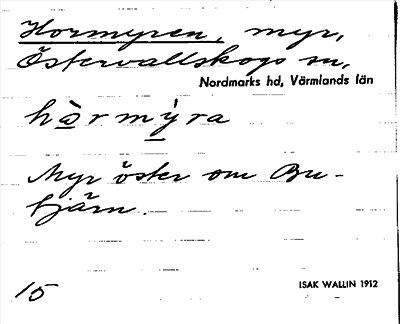 Hormyren, myr,
Östervallskogs sn,
Nordmarks hd, Värmlands län
hòrmýra
Myr öster om Bu-
tjärn.
15
ISAK WALLIN 1912